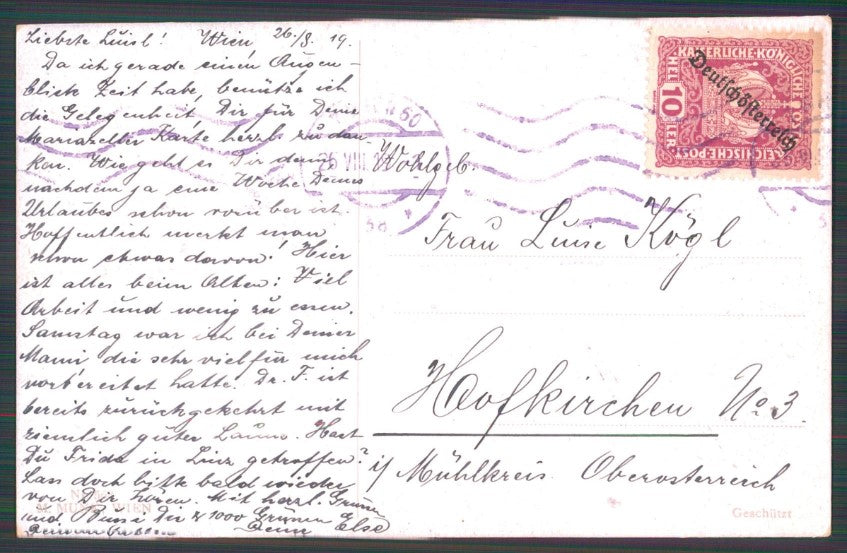 Liebste Luisl! Wien, 26./8. 19.
Da ich gerade einen Augen-
blick Zeit habe, benütze ich
die Gelegenheit Dir für Deine
Mariazeller Karte herzl. zu dan-
ken. Wie geht es Dir denn
nachdem ja eine Woche Deines
Urlaubes schon vorüber ist.
Hoffentlich merkt man
schon etwas davon! Hier
ist alles beim Alten: Viel
Arbeit und wenig zu essen.
Samstag war ich bei Deiner
Mami die sehr viel für mich
vorbereitet hatte. Dr. F. ist
bereits zurückgekehrt mit
ziemlich guter Laune. Hast
Du Frida in Linz getroffen?
Lass doch bitte bald wieder
von Dir hören. Mit herzl. Grüssen
und Bussi Dir 1000 Grüssen
Deine Else
M. MUNK WIEN
KAISERLICHE KÖNIGLICHE
HELLER 10 HELLER
Deutschösterreich
VIII
Wohlgeb.
Frau Luise Kögl
Hofkirchen No. 3.
i/ Mühlkreis Oberosterreich
Geschützt